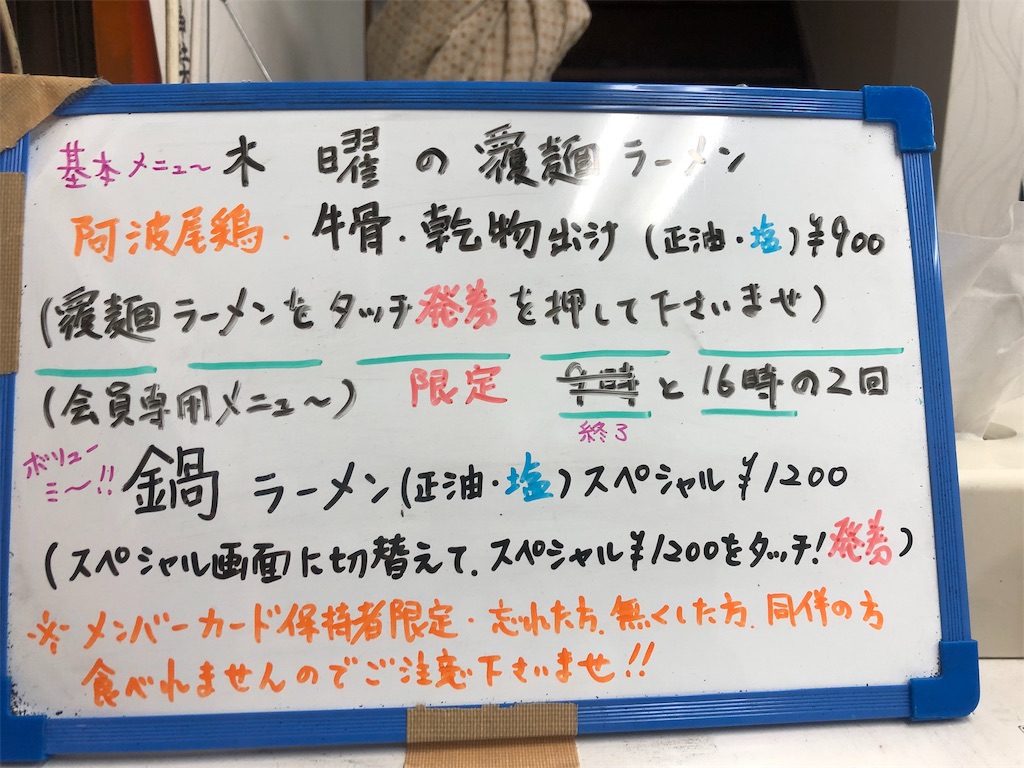 基本メニュ〜 木 曜 の 覆麺 ラーメン
阿波尾鶏・牛骨・乾物出汁 (正油・塩)¥900
(覆麺ラーメンをタッチ発券を押して下さいませ)
(会員専用メニュ〜) 限定 と16時の2回
終了
ボリュー
ミ〜!! 鍋 ラーメン(正油・塩)スペシャル¥1200
(スペシャル画面に切替えて、スペシャル¥1200をタッチ!発券)
※メンバーカード保持者限定・忘れた方、無くした方、同伴の方
食べれませんのでご注意下さいませ!!